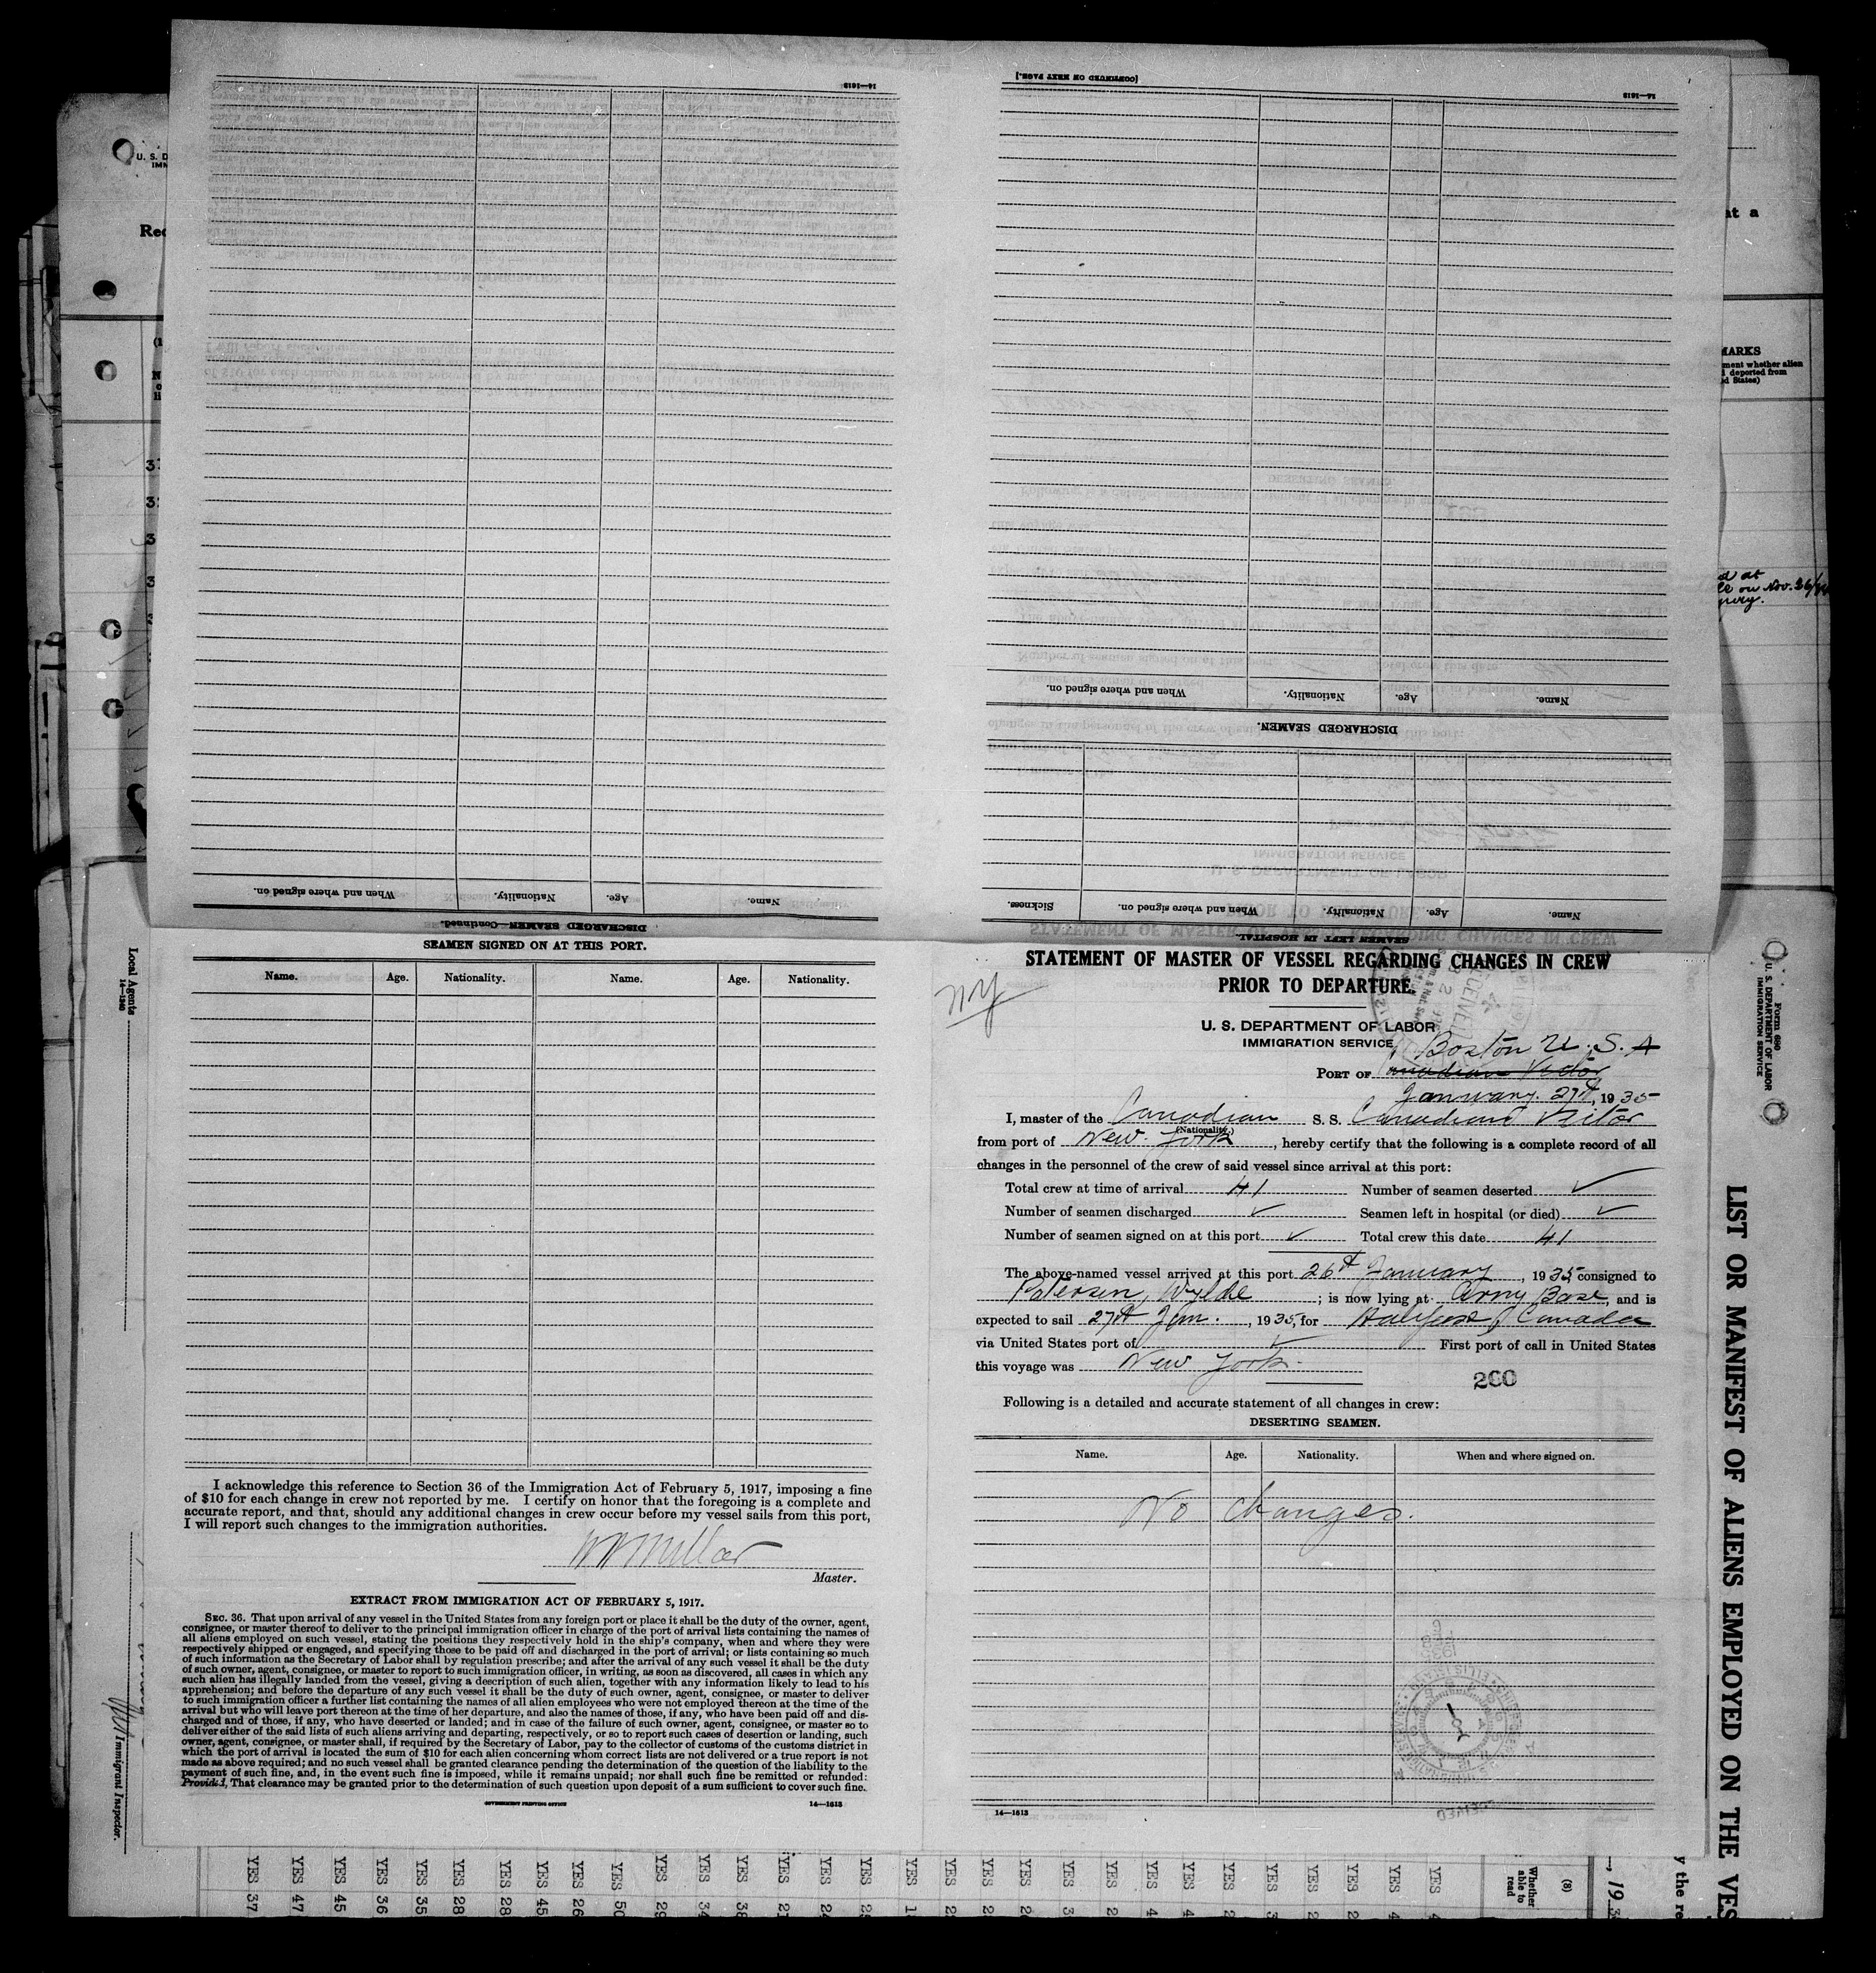 [CONTINUED ON NEXT PAGE.]
14—1613
14—1613
When and where signed on.
Nationality.
Age.
Name.
DISCHARGED SEAMEN.
Name.
Age.
Nationality.
When and where signed on.
DISCHARGED SEAMEN—Continued.
Name.
Age.
Nationality.
When and where signed on.
Sickness.
SEAMEN LEFT IN HOSPITAL.
SEAMEN SIGNED ON AT THIS PORT.
Name. Age. Nationality. Name. Age. Nationality.
I acknowledge this reference to Section 36 of the Immigration Act of February 5, 1917, imposing a fine
of $10 for each change in crew not reported by me. I certify on honor that the foregoing is a complete and
accurate report, and that, should any additional changes in crew occur before my vessel sails from this port,
I will report such changes to the immigration authorities.
Master.
EXTRACT FROM IMMIGRATION ACT OF FEBRUARY 5, 1917.
SEC. 36. That upon arrival of any vessel in the United States from any foreign port or place it shall be the duty of the owner, agent,
consignee, or master thereof to deliver to the principal immigration officer in charge of the port of arrival lists containing the names of
all aliens employed on such vessel, stating the positions they respectively hold in the ship's company, when and where they were
respectively shipped or engaged, and specifying those to be paid off and discharged in the port of arrival; or lists containing so much
of such information as the Secretary of Labor shall by regulation prescribe; and after the arrival of any such vessel it shall be the duty
of such owner, agent, consignee, or master to report to such immigration officer, in writing, as soon as discovered, all cases in which any
such alien has illegally landed from the vessel, giving a description of such alien, together with any information likely to lead to his
apprehension; and before the departure of any such vessel it shall be the duty of such owner, agent, consignee, or master to deliver
to such immigration officer a further list containing the names of all alien employees who were not employed thereon at the time of the
arrival but who will leave port thereon at the time of her departure, and also the names of those, if any, who have been paid off and dis-
charged and of those, if any, who have deserted or landed; and in case of the failure of such owner, agent, consignee, or master so to
deliver either of the said lists of such aliens arriving and departing, respectively, or so to report such cases of desertion or landing, such
owner, agent, consignee, or master shall, if required by the Secretary of Labor, pay to the collector of customs of the customs district in
which the port of arrival is located the sum of $10 for each alien concerning whom correct lists are not delivered or a true report is not
made as above required; and no such vessel shall be granted clearance pending the determination of the question of the liability to the
payment of such fine, and, in the event such fine is imposed, while it remains unpaid; nor shall such fine be remitted or refunded:
Provided, That clearance may be granted prior to the determination of such question upon deposit of a sum sufficient to cover such fine.
GOVERNMENT PRINTING OFFICE 14—1613
NY
STATEMENT OF MASTER OF VESSEL REGARDING CHANGES IN CREW
PRIOR TO DEPARTURE.
U. S. DEPARTMENT OF LABOR
IMMIGRATION SERVICE
Boston U. S. A
PORT OF Canadian Victor
January. 27th, 1935
I, master of the Canadian S. S. Canadian Victor
(Nationality.)
from port of New York, hereby certify that the following is a complete record of all
changes in the personnel of the crew of said vessel since arrival at this port:
Total crew at time of arrival 41 Number of seamen deserted ✓
Number of seamen discharged ✓ Seamen left in hospital (or died) ✓
Number of seamen signed on at this port ✓ Total crew this date 41
The above-named vessel arrived at this port 26th January, 1935, consigned to
Patersen, Wylde; is now lying at Army Base, and is
expected to sail 27th Jan., 1935, for Halifax, Canada
via United States port of ✓ First port of call in United States
this voyage was New York.
260
Following is a detailed and accurate statement of all changes in crew:
DESERTING SEAMEN.
Name. Age. Nationality. When and where signed on.
No changes.
14—1613
Local Agents
14—1240
Immigrant Inspector.
Form 680
U. S. DEPARTMENT OF LABOR
IMMIGRATION SERVICE
LIST OR MANIFEST OF ALIENS EMPLOYED ON THE VES
YES 37
YES 47
YES 45
YES 36
YES 35
YES 28
YES 28
YES 45
YES 26
YES 50
YES 29
YES 34
YES 38
YES 21
YES 24
Whether
able to
read
(8)
y the re